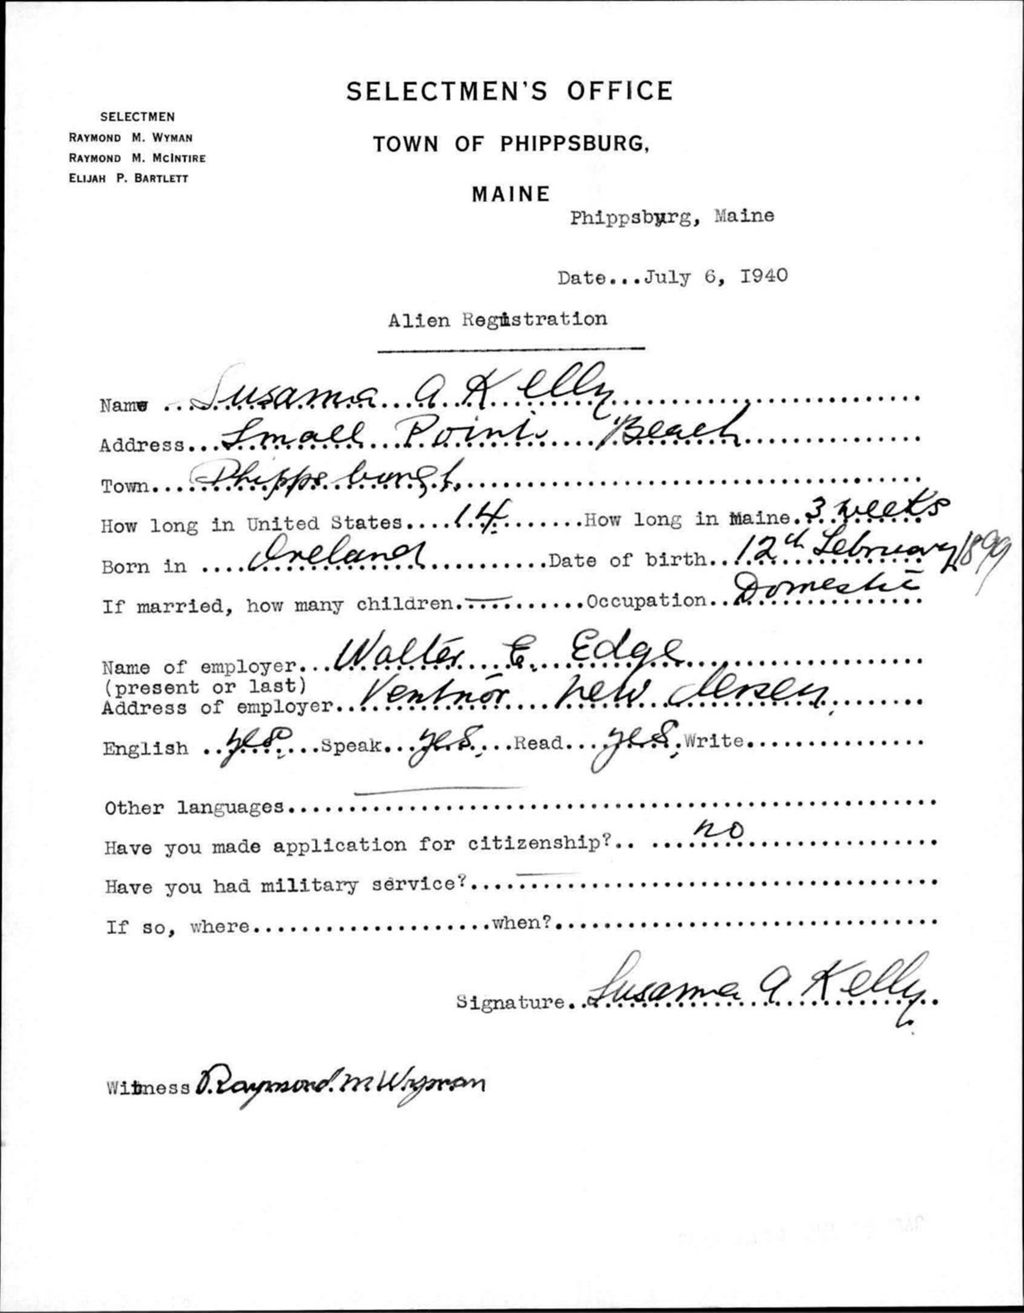 SELECTMEN'S OFFICE
SELECTMEN
RAYMOND M. WYMAN
RAYMOND M. MCINTIRE
ELIJAH P. BARTLETT
TOWN OF PHIPPSBURG,
MAINE
Phippsburg, Maine
Date...July 6, 1940
Alien Registration
Name ... Susanna A Kelly
Address... Small Point Beach
Town.... Phippsburgh
How long in United States.... 14 .......How long in Maine. 3 weeks
Born in .... Ireland ...........Date of birth.. 12th February 1899
If married, how many children. — .......Occupation.. Domestic
Name of employer... Walter E. Edge
(present or last)
Address of employer.. Ventnor New Jersey
English .. yes ...Speak... yes ...Read... yes .Write...............
Other languages.. —
Have you made application for citizenship?.. .... no
Have you had military service?.... —
If so, where.....................when?..................................
Signature.. Susanna A Kelly
Witness Raymond M Wyman